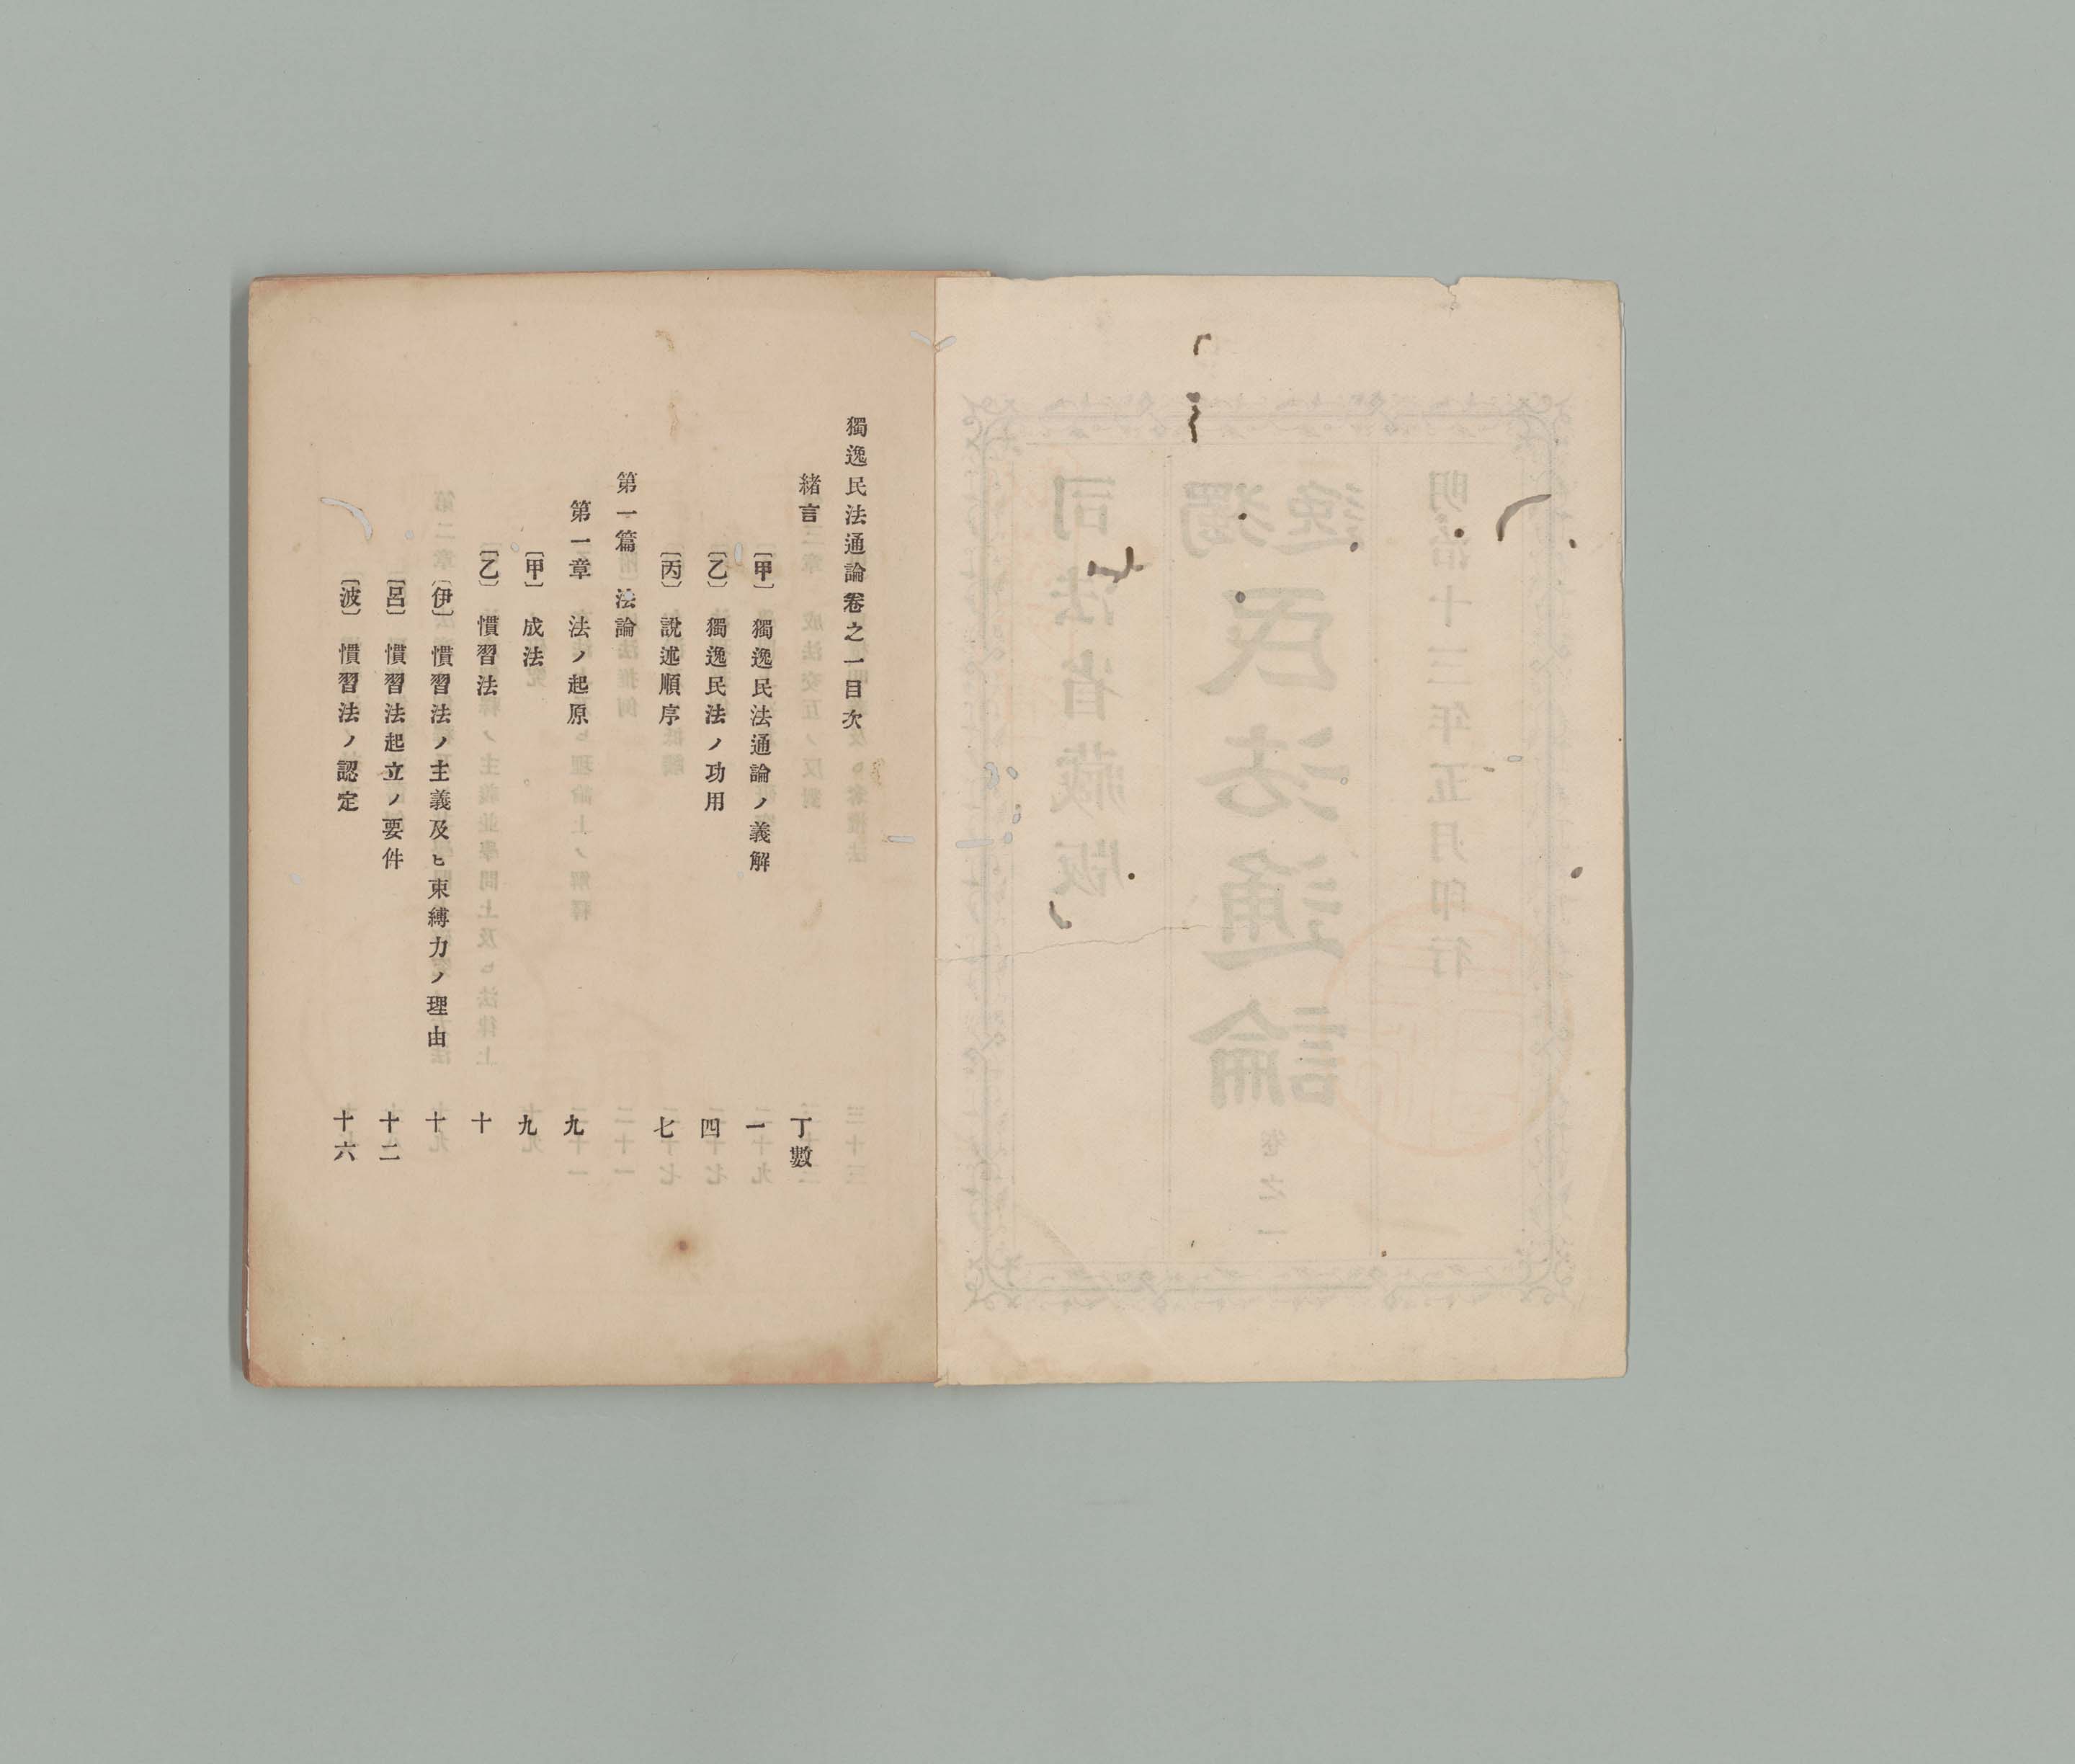 明治十三年五月印行
獨逸
民法通論
卷之一
司法省藏版
獨逸民法通論卷之一目次
緒言 丁數
〔甲〕 獨逸民法通論ノ義解 一
〔乙〕 獨逸民法ノ功用 四
〔丙〕 說述順序 七
第一篇 法論
第一章 法ノ起原 九
〔甲〕 成法 九
〔乙〕 慣習法 十
〔伊〕 慣習法ノ主義及ヒ束縛力ノ理由 十
〔呂〕 慣習法起立ノ要件 十二
〔波〕 慣習法ノ認定 十六